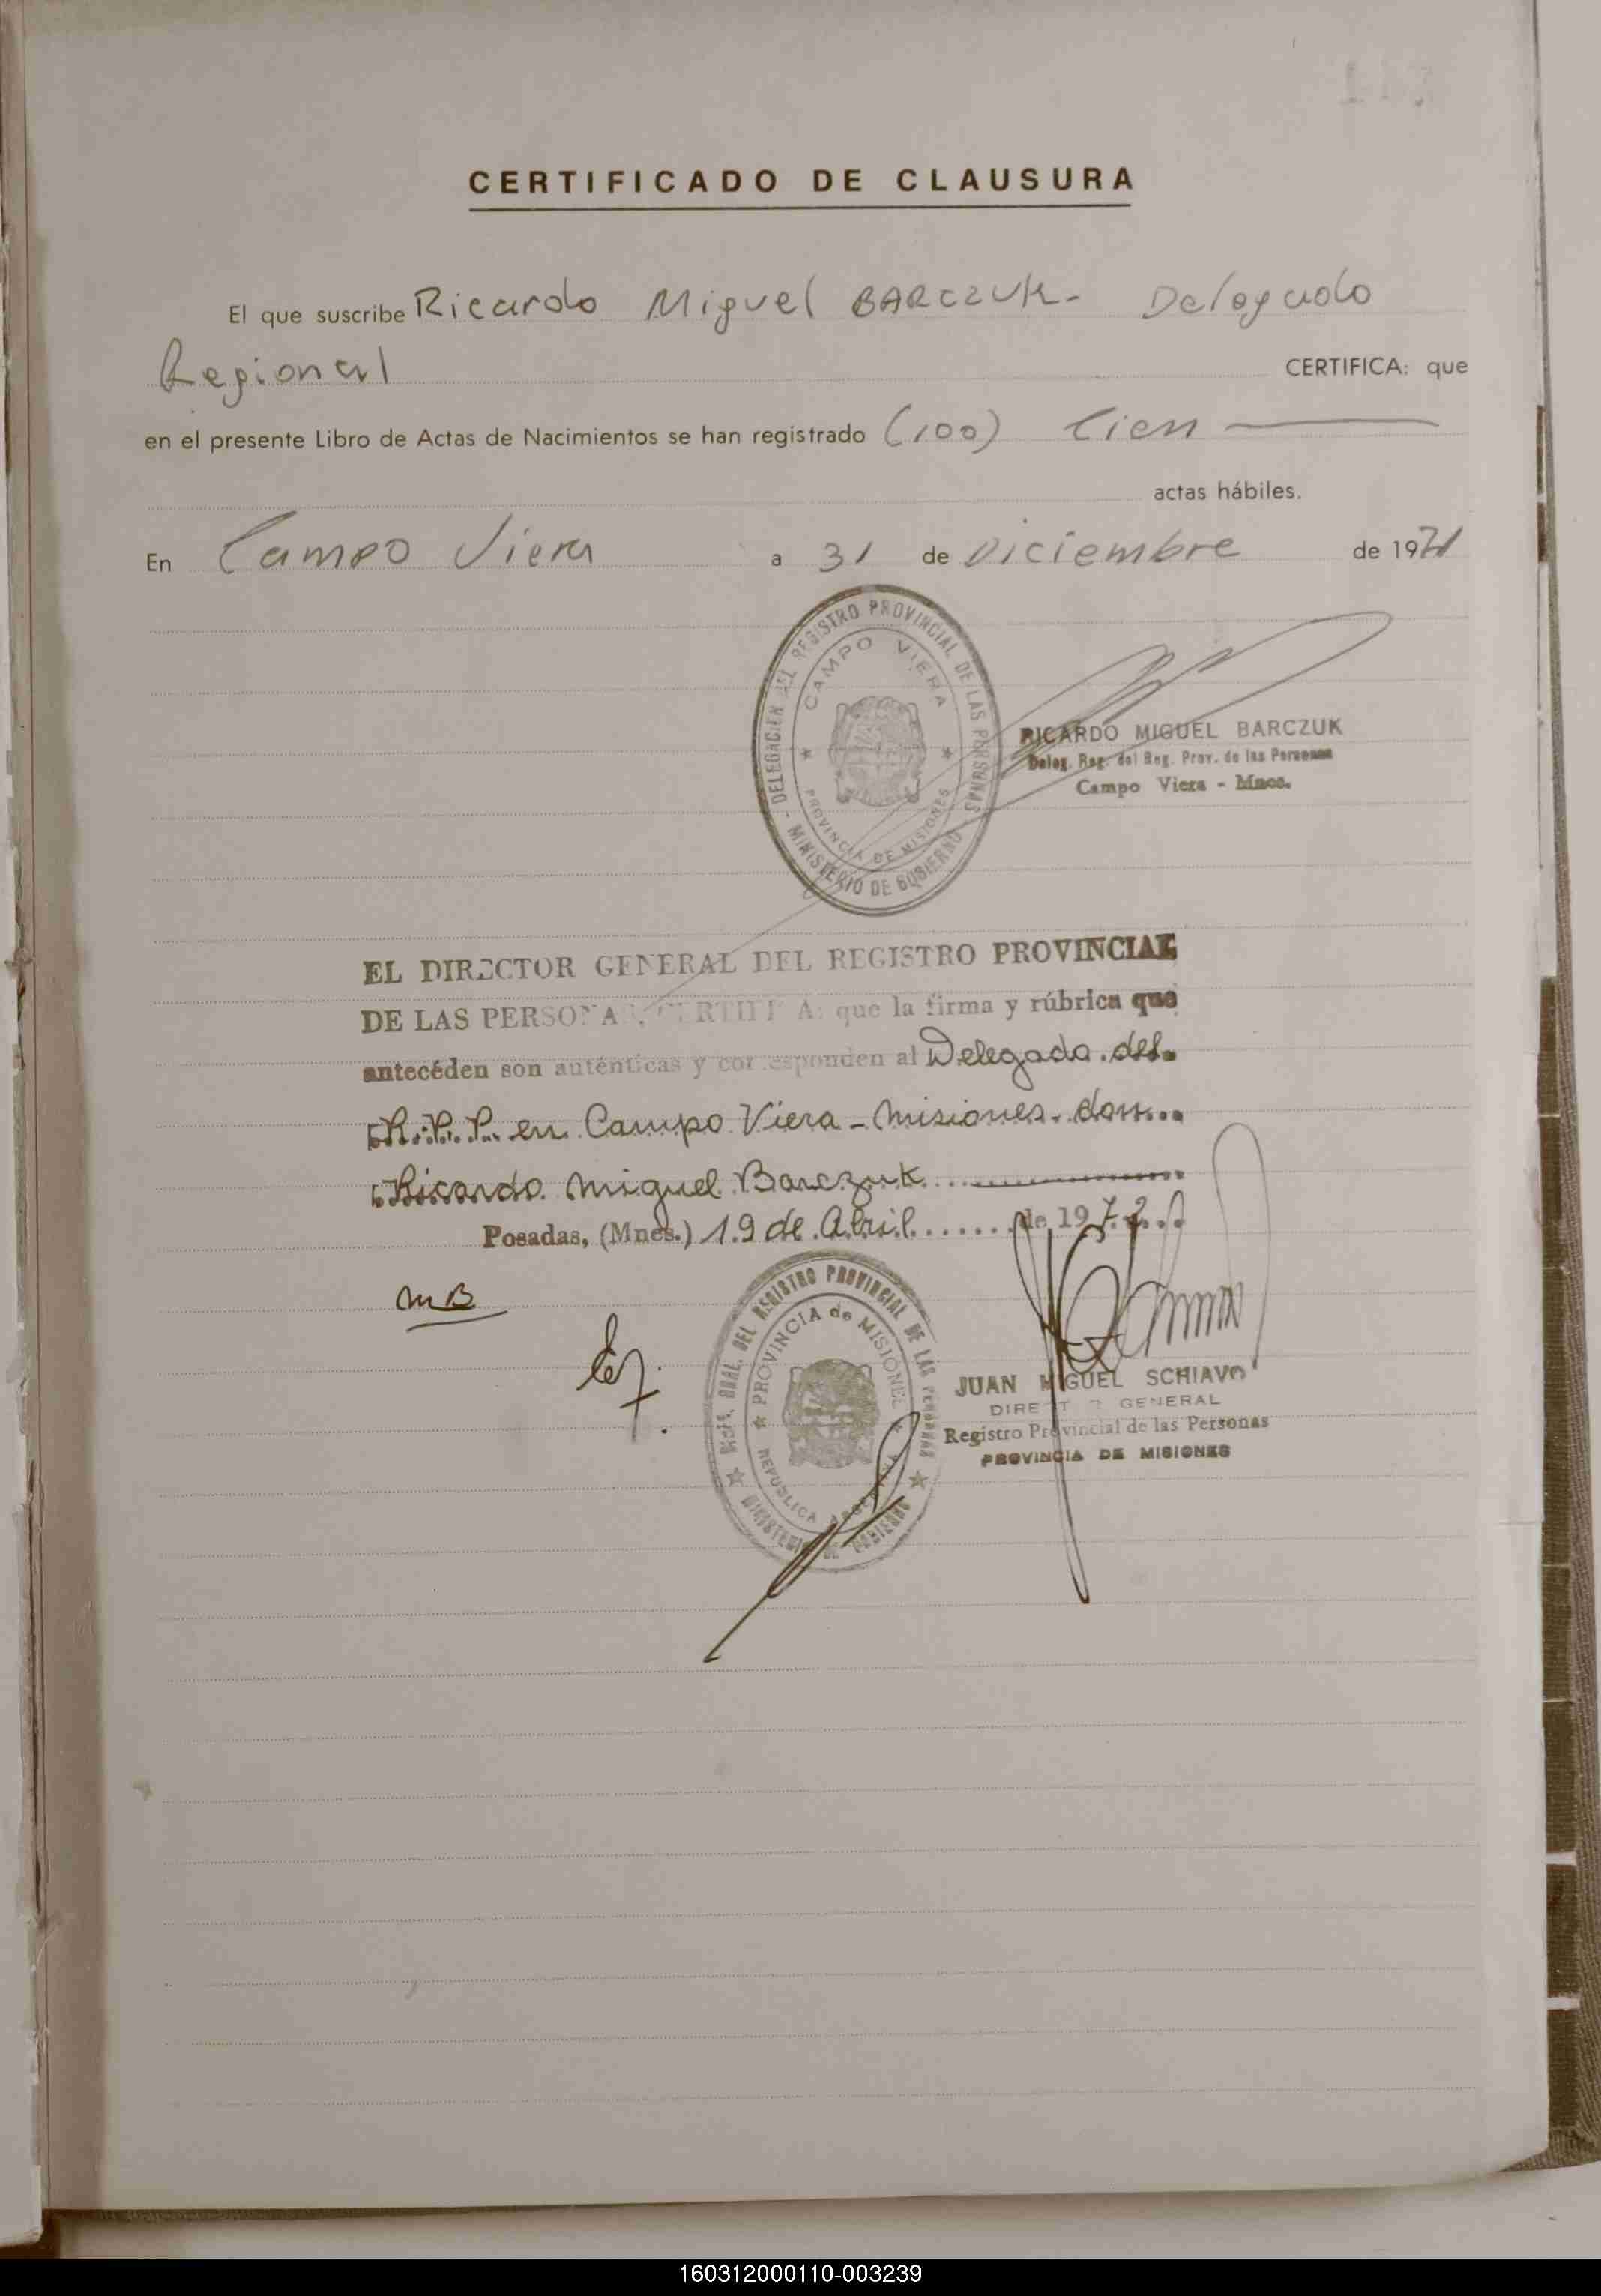 CERTIFICADO DE CLAUSURA
El que suscribe Ricardo Miguel BARCZUK - Delegado
Regional CERTIFICA: que
en el presente Libro de Actas de Nacimientos se han registrado (100) Cien
actas hábiles.
En Campo Viera a 31 de Diciembre de 1971
DELEGACIÓN DEL REGISTRO PROVINCIAL DE LAS PERSONAS - MINISTERIO DE GOBIERNO
CAMPO VIERA
PROVINCIA DE MISIONES
RICARDO MIGUEL BARCZUK
Deleg. Reg. del Reg. Prov. de las Personas
Campo Viera - Mnes.
EL DIRECTOR GENERAL DEL REGISTRO PROVINCIAL
DE LAS PERSONAS, CERTIFICA: que la firma y rúbrica que
antecéden son auténticas y corresponden al Delegado del
R.P.P. en Campo Viera - Misiones - don
Ricardo Miguel Barczuk
Posadas, (Mnes.) 19 de Abril de 1972
MB
DIREC. GRAL. DEL REGISTRO PROVINCIAL DE LAS PERSONAS
PROVINCIA de MISIONES
REPUBLICA ARGENTINA
MINISTERIO DE GOBIERNO
JUAN MIGUEL SCHIAVO
DIRECTOR GENERAL
Registro Provincial de las Personas
PROVINCIA DE MISIONES
160312000110-003239